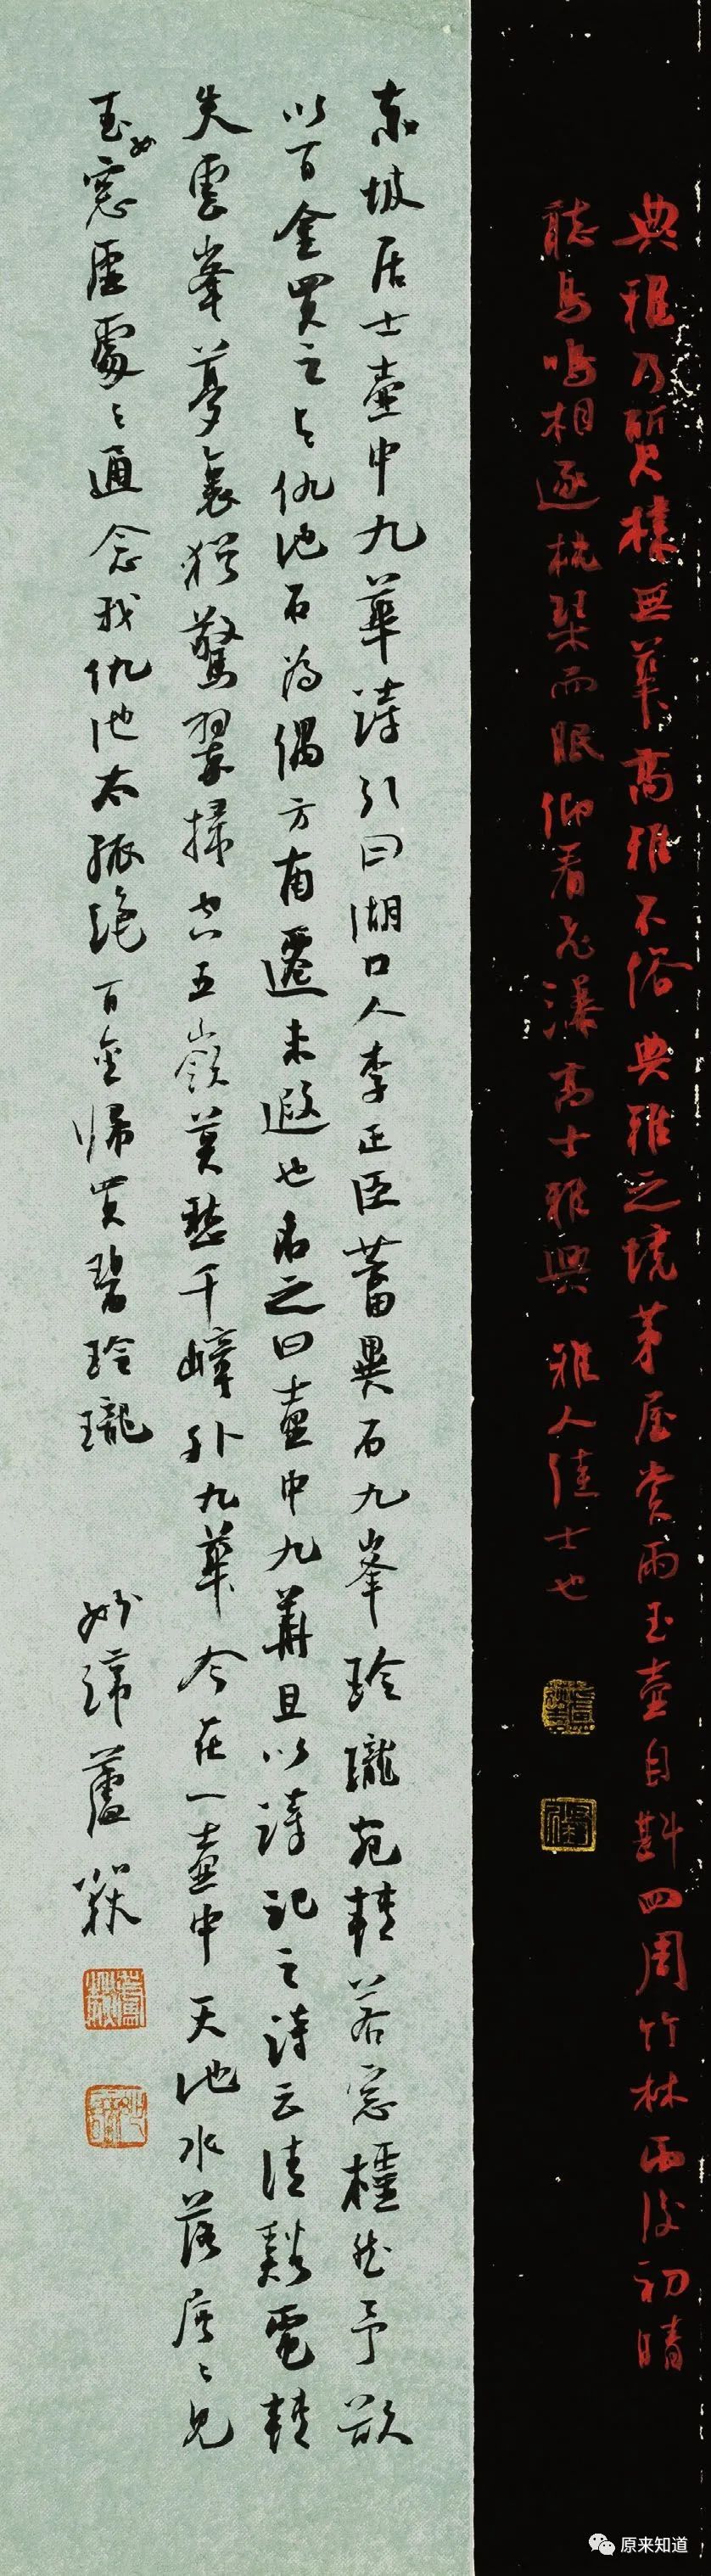 典雅乃質樸無華高雅不俗典雅之境茅屋賞雨玉壺自斟四周竹林雨後初晴
聽鳥鳴相逐枕琴而眠仰看飛瀑高士雅興 雅人佳士也
東坡居士壺中九華詩引曰湖口人李正臣蓄異石九峯玲瓏宛轉若窓櫺然予欲
以百金買之与仇池石為偶方南遷未遐也名之曰壺中九華且以詩記之詩云清谿電轉
失雲峯夢裏猶驚翠掃空五嶺莫愁千嶂外九華今在一壺中天池水落層々見
玉女窓虛處々通念我仇池太孤絕百金歸買碧玲瓏 妙諦蘆
原来知道